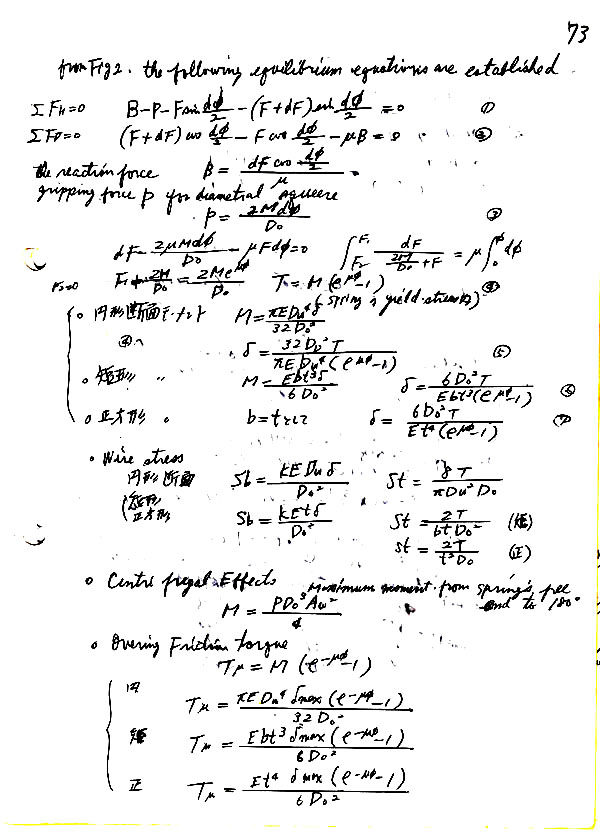 73
from Fig 2. the following equilibrium equations are established
ΣFH=0 B-P-F sin dφ/2 -(F+dF) sin dφ/2 = 0 ①
ΣFV=0 (F+dF) cos dφ/2 - F cos dφ/2 - μB = 0 ②
the reaction force B = dF cos dφ/2 / μ
gripping force P for diametral squeeze
P = 2Mdφ/D₀ ③
dF - 2μMdφ/D₀ - μFdφ=0 ∫ F₁ F₂ dF / (2M/D₀ + F) = μ∫₀^φ dφ
F₂=0 F₁ + 2M/D₀ = 2Me^μφ/D₀ T = M(e^μφ-1) ④
円形断面 M = πEDw⁴δ / 32D₀²
δ = 32D₀²T / πEDw⁴(e^μφ-1) ⑤
矩形 〃 M = Ebt³δ / 6D₀² δ = 6D₀²T / Ebt³(e^μφ-1) ⑥
正方形 〃 b=tとして δ = 6D₀²T / Et⁴(e^μφ-1) ⑦
Wire stress
円形断面 Sb = KEDwδ / D₀² St = 8T / πDw²D₀
矩形 正方形 Sb = KEtδ / D₀² St = 2T / btD₀² (矩)
St = 2T / t²D₀ (正)
Centrifugal Effects Maximum moment from spring's free
end to 180°
M = PD₀³Aω² / 4
Overing Friction torque
Tμ = M (e^-μφ-1)
円 Tμ = πEDw⁴ δmax (e^-μφ-1) / 32D₀²
矩 Tμ = Ebt³ δmax (e^-μφ-1) / 6D₀²
正 Tμ = Et⁴ δmax (e^-μφ-1) / 6D₀²